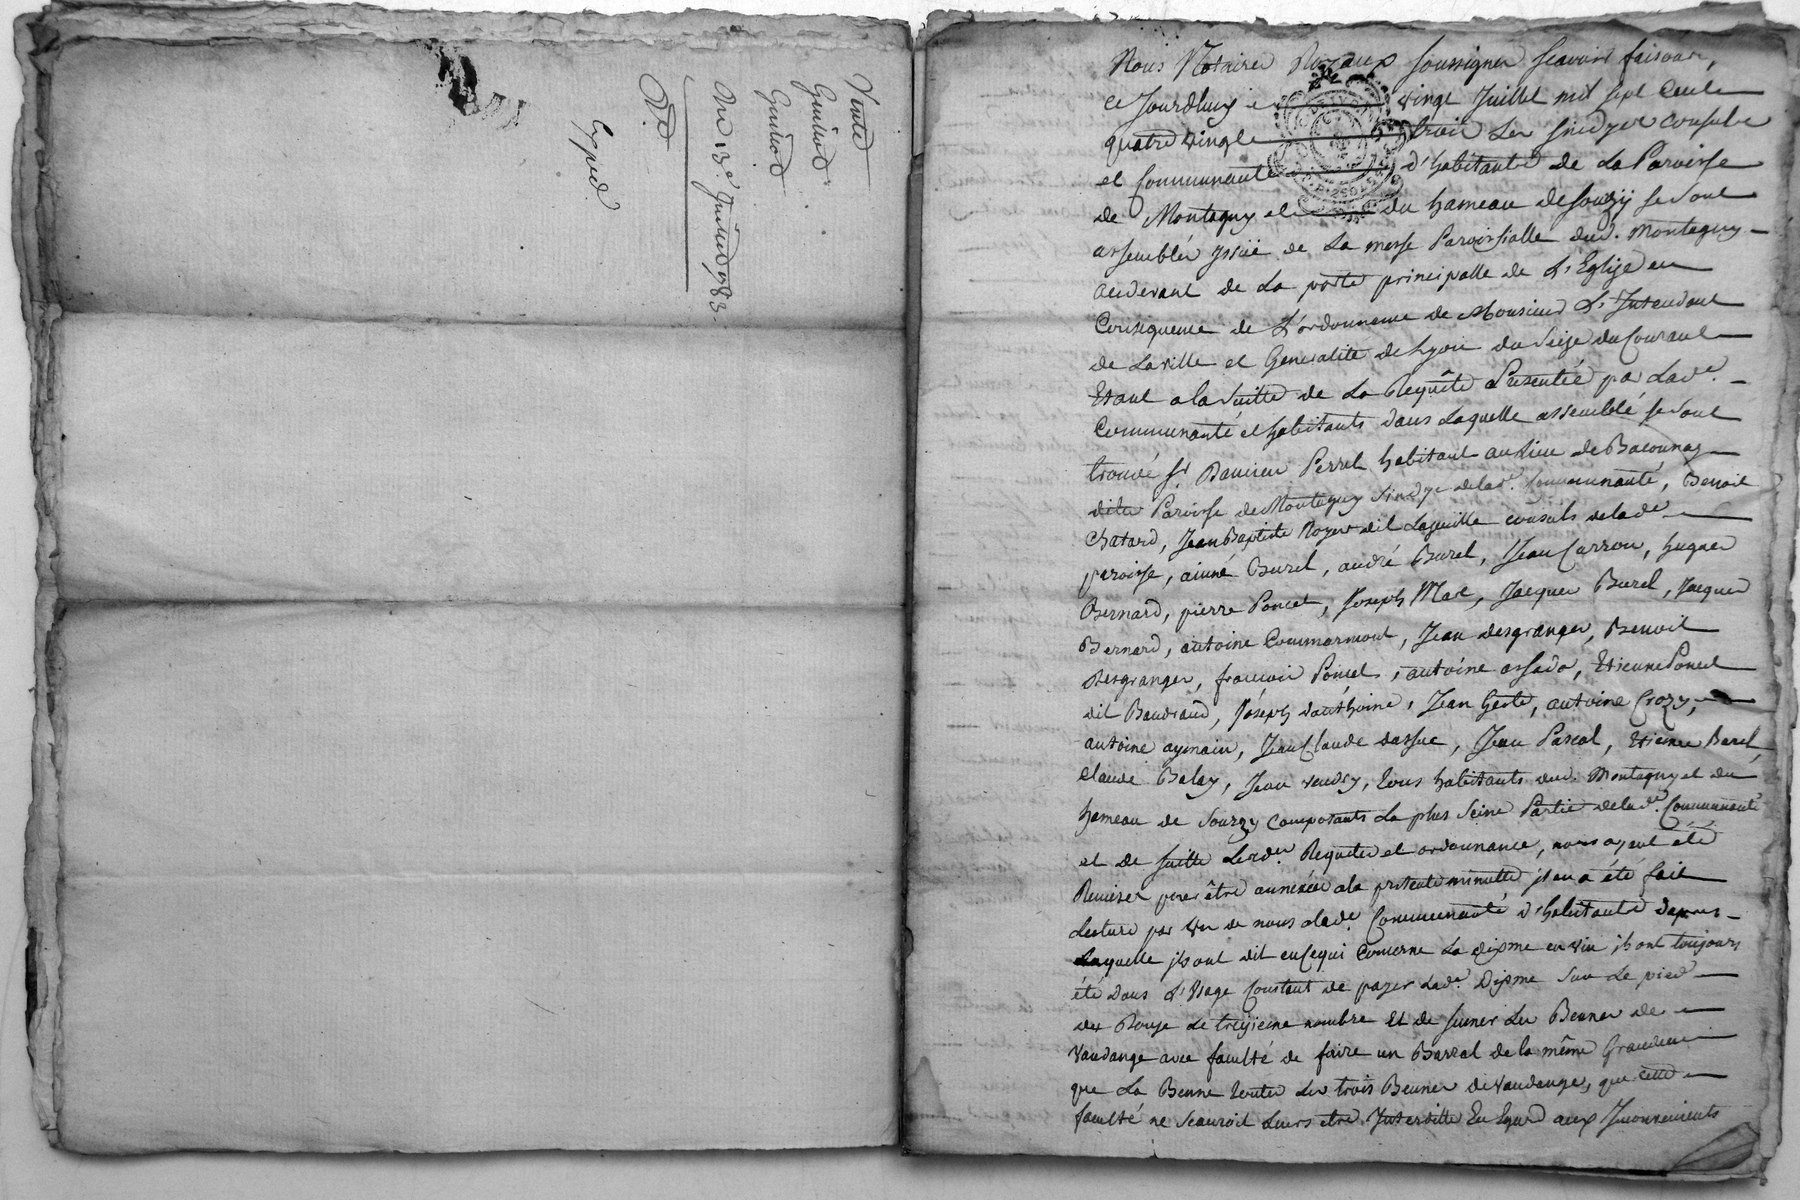 Vente
Guinod
Guinod
Du 13e Juillet 1783
Expéd
Nous Notaires Royaux soussignes scavoir faisons,
ce Jourdhuy vingt Juillet mil sept Cent
quatre vingt trois Les sindycs consuls
et Communauté d'habitants de La Paroisse
de Montagny et du hameau de Sourzy se sont
assemblés issüe de La messe Paroissialle dud. Montagny
audevant de La porte principalle de L'Eglise en
Consequence de L'ordonnance de Monsieur L'Intendant
de La ville et Generalité de Lyon du Seize du Courant
Etant a la Suitte de La Requête Presentée par Lade.
Communauté et habitants dans Laquelle assemblé se sont
trouvé sr. Damien Perret habitant au Lieu de Baconnay
dite Paroisse de Montagny Sindyc delade. Communauté, Benoit
Chatard, Jean Baptiste Royer dit Lajeuille consuls delade
paroisse, aimé Burel, andré Burel, Jean Carron, hugues
Bernard, pierre Poncet, Joseph Mare, Jacques Burel, Jacques
Bernard, antoine Commarmont, Jean desgranges, Benoit
Desgranges, francois Poncet, antoine assada, Etienne Poncet
dit Baudrand, Joseph danthoine, Jean Geste, antoine Crozy,
antoine aymain, Jean Claude dassuc, Jean Pascal, Etienne Barel,
Claude Balay, Jean vendry, tous habitants dud. Montagny et du
hameau de Sourzy composants La plus Seine Partie delade. Communauté
et de suitte Lesdes. Requete et ordonnance, nous ayant été
Remises pour être annexées ala presente minutte il en a été fait
Lecture par un de nous alade. Communauté d'habitants Depuis
Laquelle ils ont dit en Cequi Concerne La dixme en vin ils ont toujours
été dans L'Usage Constant de payer Lade. Dixme Sur Le pied
du Rouge Le treizieme nombre Et de sumer Les Bennes de
Vandange avec faculté de faire un Barral de la même Grandeur
que La Benne toutes Les trois Bennes de Vandange, que cette
faculté ne scauroit Leurs etre Interditte En Egard aux Inconvenients